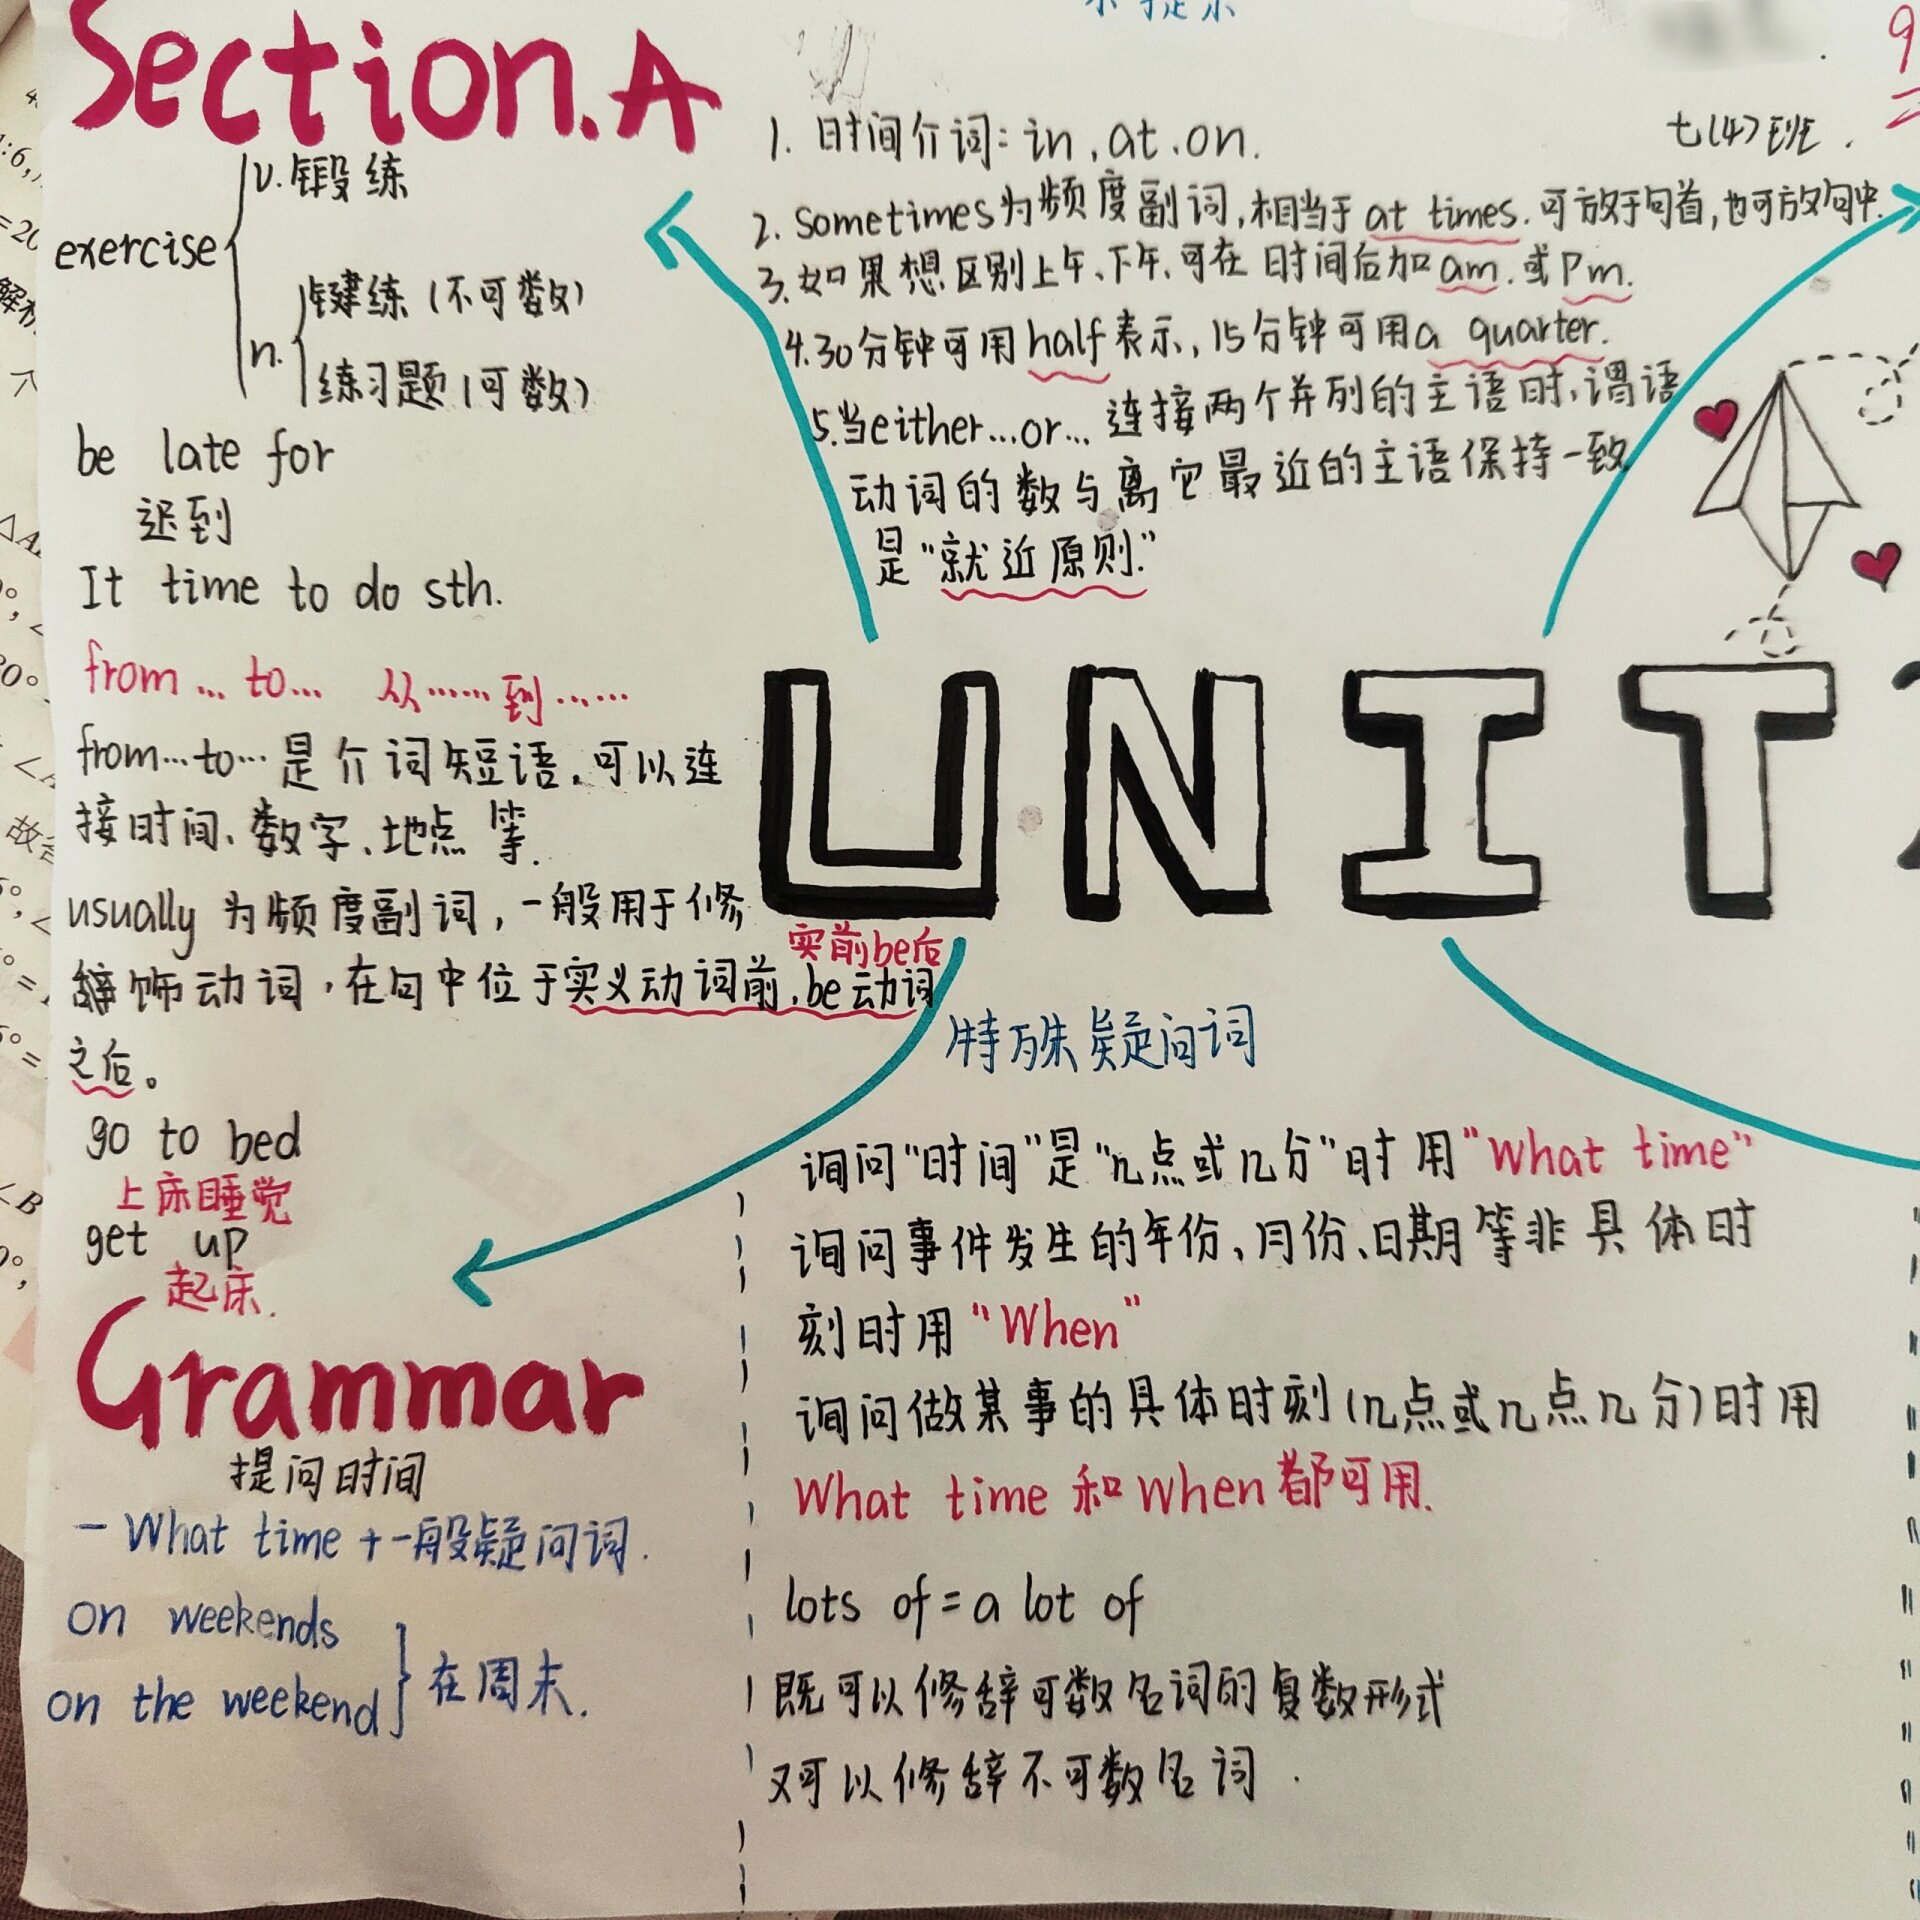 Section.A
exercise
v.锻练
n.
键练(不可数)
练习题(可数)
be late for
迟到
It time to do sth.
from...to... 从……到……
from...to...是介词短语,可以连
接时间、数字、地点等.
usually为频度副词,一般用于修
饰动词,在句中位于实义动词前,be动词
之后。
实前be后
go to bed
上床睡觉
get up
起床.
1. 时间介词: in,at,on.
2. sometimes为频度副词,相当于at times.可放于句首,也可放句中.
3.如果想区别上午、下午,可在时间后加am.或Pm.
4.30分钟可用half表示,15分钟可用a quarter.
5.当either...or...连接两个并列的主语时,谓语
动词的数与离它最近的主语保持一致
是"就近原则."
七(4)班.
UNIT
Grammar
提问时间
-What time+一般疑问词.
on weekends
on the weekend
在周末.
特殊疑问词
询问"时间"是"几点或几分"时用"What time"
询问事件发生的年份、月份、日期等非具体时
刻时用"When"
询问做某事的具体时刻(几点或几点几分)时用
What time和When都可用.
lots of=a lot of
既可以修辞可数名词的复数形式
又可以修辞不可数名词.